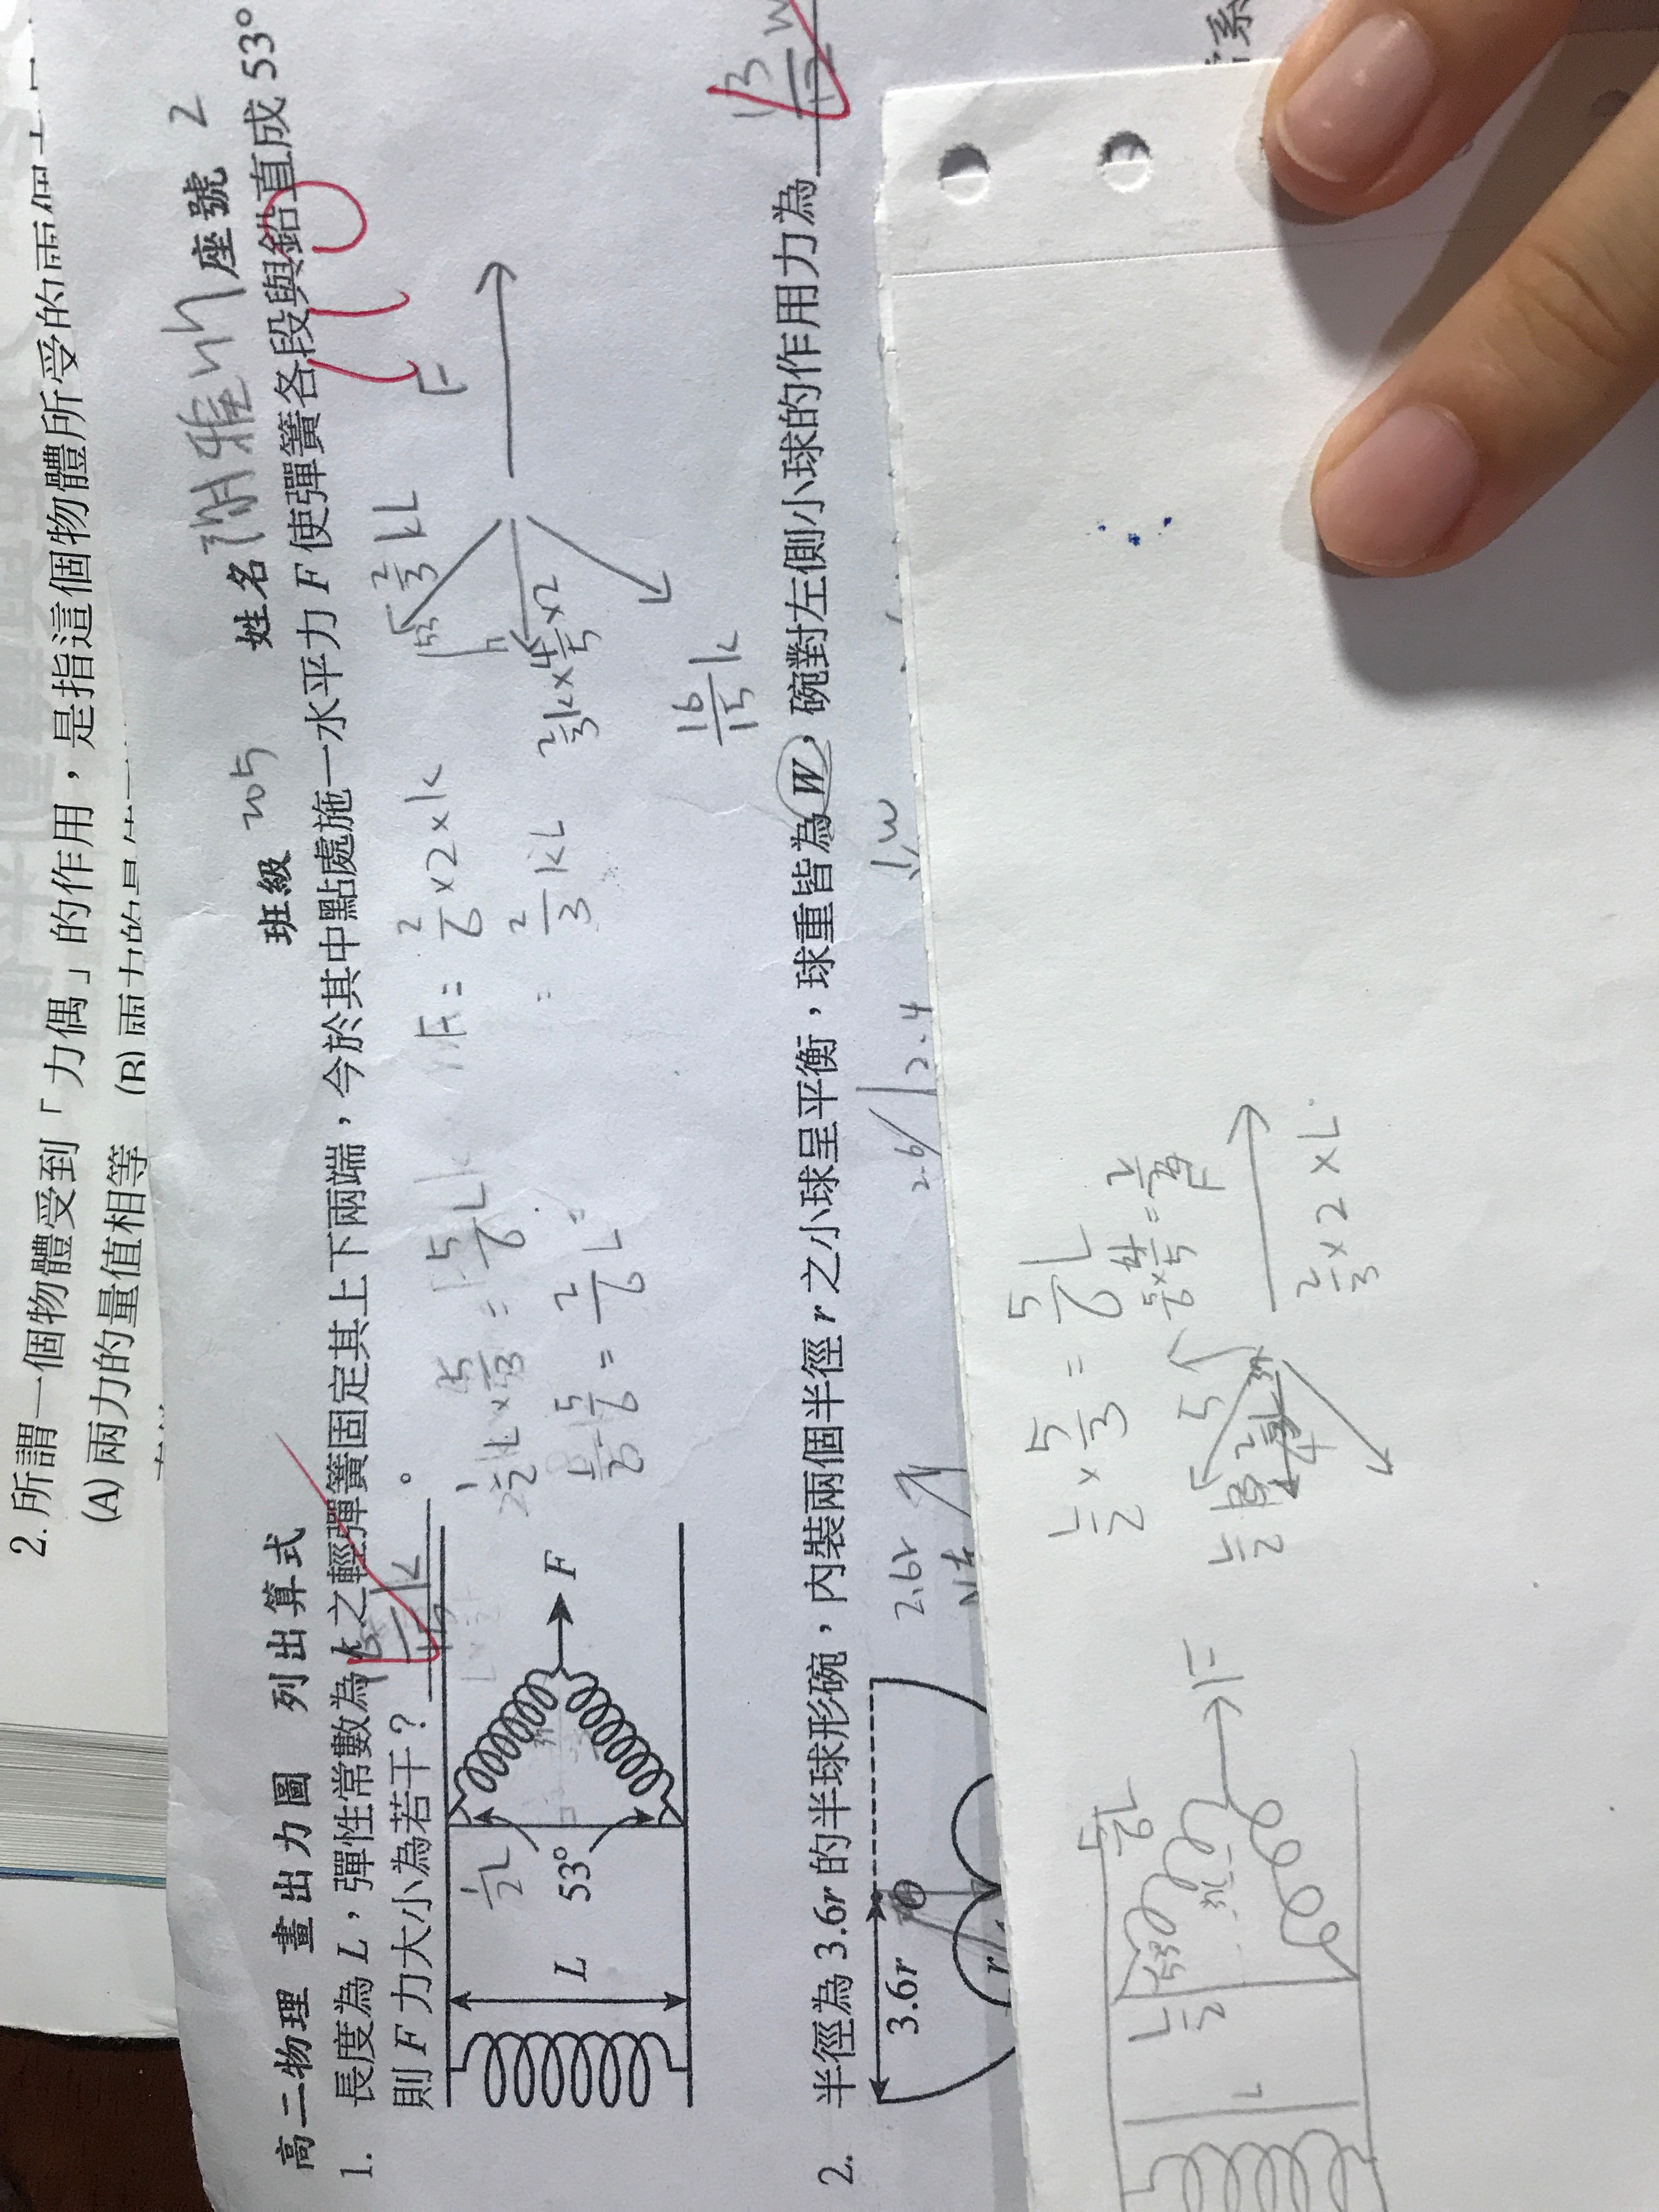 2. 所謂一個物體受到「力偶」的作用，是指這個物體所受的兩個
(A) 兩力的量值相等 (B) 兩力的
高二物理 畫出力圖 列出算式 班級 205 姓名 座號 2
1. 長度為 L，彈性常數為 k 之輕彈簧固定其上下兩端，今於其中點處施一水平力 F 使彈簧各段與鉛直成 53°
則 F 力大小為若干？ 。
L
1/2 L
53°
F
1/2 L × 5/3 = 5/6 L
5/6 = 2/6 L =
F = 2/6 × 2 × k
= 2/3 kL
2/3 kL
F
2/3 k × 4/5 × 2
16/15 k
2. 半徑為 3.6r 的半球形碗，內裝兩個半徑 r 之小球呈平衡，球重皆為 W，碗對左側小球的作用力為 13/12 W
3.6r
r
θ
2.6r
2.6
2.4
W
L/2 × 5/3 = 5/6 L
5/6 × 4/5 =
L/2
5
4
2/3 × 2 × L
L
L/2
53°
5/6 L
F
係